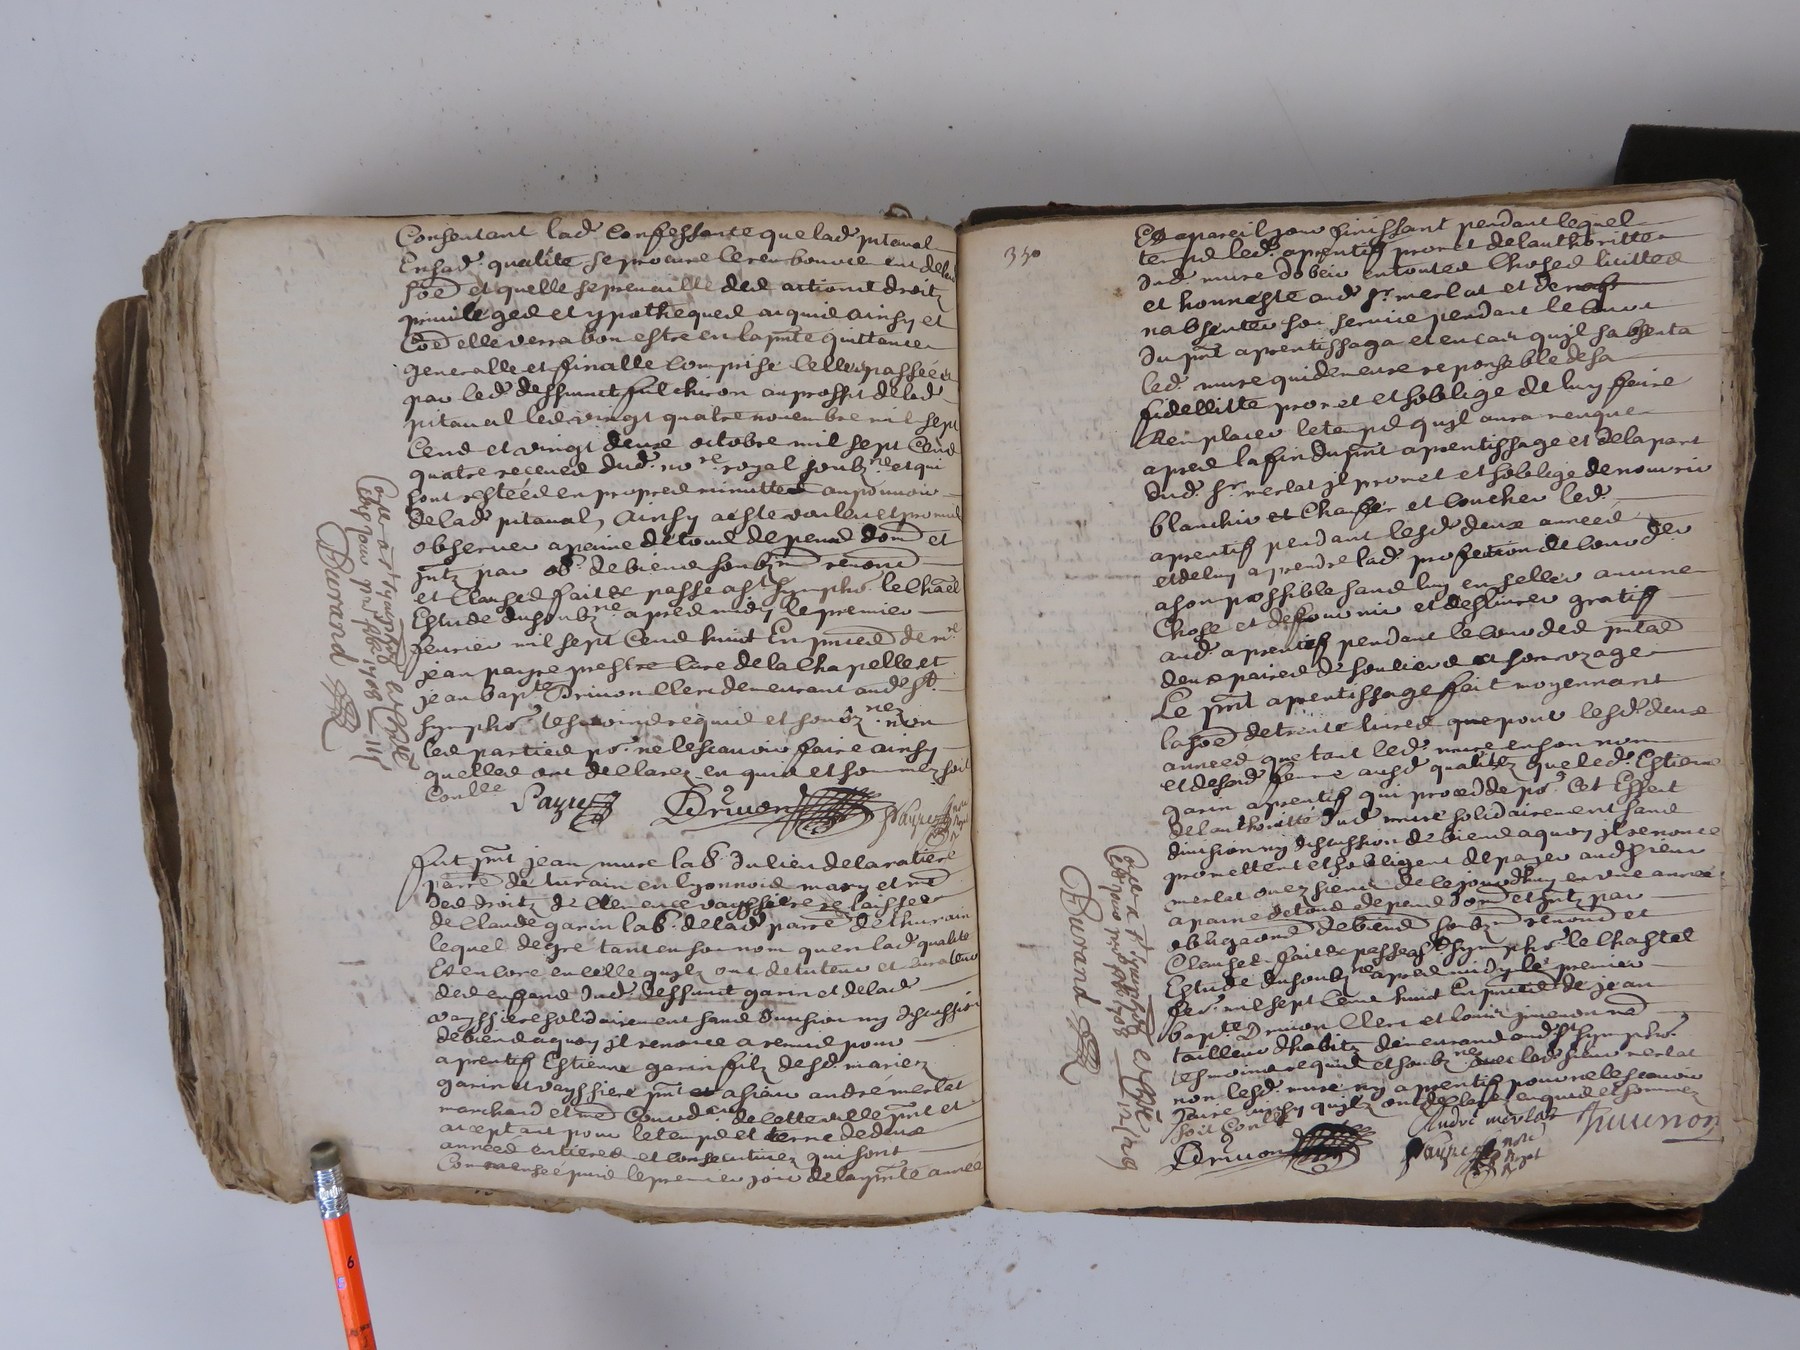 Consentant lad. Confessante que lad. pitaval
En sad. qualité se procure le rembource ent de lad.
soē et quelle se prevaille des actions droitz
privileges et ypotheques acquis ainsy et
Coē elle verra bon estre en la pnte quittance
generalle et finalle Comprise Celles passées
par led. deffunct fulchiron au proffit de lad.
pitaval les vingt quatre novembre mil sept
Cens et vingt deux octobre mil sept Cens
quatre receues dud. no.re royal soubz.né et qui
sont restées en propres minuttes au pouvoir
de lad. pitaval, ainsy a este voulu et promis
observer a peine de tous depens dom et
jntz par ob. de biens soubzm renond
et Clauses fait et passé a St Sympho. le Chael
Estude du soubz.né apres midy le premier
fevrier mil sept Cens huit En pnce de m.re
jean payre prestre Curé de la Chapelle et
jean bap.te Drivon Clerc demeurant aud. St.
Sympho. tesmoins requis et sousz.nez non
les parties po. ne le scavoir faire ainsy
quelles ont declarez enquis et sommez soit
Con.lle
Payre Drivon Payre no.re Royal
fut pnt jean mure lab. du lieu de la ratiere
parre de turain en lyonnois mary et me
des droitz de Clemence vayssiere relaissée
de Claude garin lab. de lad. parre de thurain
lequel de gre tant en son nom qu en lad. qualité
Et encore en celle quilz ont de tuteur et curateur
des enffans dud. deffunct garin et de lad.
vayssiere solidairement sans division ny discussion
de biens a quoy jl renonce a remis pour
aprentif Estienne garin filz desd. mariez
garin et vayssiere pnt et a sieur andré merlat
marchand et me Courd.er de cette ville pnt et
acceptant pour le temps et terme de deux
années entieres et consecutives qui sont
Commencées puis le premier jour de la pnte année
Con.le a St Sympho. le Ch.el
Durand
350
Et a pareil jour finissant pendant lequel
temps led. aprentif promet de lauthoritte
dud. mure dobeir en toutes Choses licittes
et honneste aud. sr. merlat et de
nabsenter son service pendant le Cours
du pnt aprentissage et en cas quil sabsenta
led. mure qui demeure reponsable de sa
fidellitte promet et soblige de luy faire
Remplacer le temps quil aura manqué
apres la fin du pnt aprentissage et de la part
dud. sr. merlat jl promet et soblige de nourrir
blanchir et Chaufer et Coucher led.
aprentif pendant lesd. deux années
et de luy aprendre lad. profection de Courd.er
a son possible sans luy en seller aucune
Chose et de fournir et deslivrer gratis
aud. aprentif pendant le Cours des pntes
deux paires de souliers a son usage
Le pnt aprentissage fait moyennant
la soē de trente livres que pour lesd. deux
années que tant led. mure en son nom
et de sad. femme ausd. qualitez que led. Estienne
garin aprentif qui procede po. Cet Effect
de lauthoritté dud. mure solidairement sans
division ny discussion de biens a quoy jl renonce
promettent et sobligent de payer aud. sieur
merlat ou ez siens de ce jourdhuy en une année
a paine de tous depens dom et jntz par
obligaons de biens soubzm renond et
Clauses fait et passé a St Sympho. le Chastel
Estude du soubz.né apres midy le premier
fev. mil sept Cens huit En pnce de jean
bap.te Drivon Clerc et louis juvenon me
tailleur dhabitz demeurans aud. St Sympho.
tesmoins requis et soubz.nez avec led. sieur merlat
non lesd. mure ny aprentif pour ne le scavoir
faire ainsy quilz ont declaré enquis et sommez
soit Con.lle
André merlat Juuenon
Drivon Payre no.re Royal
Durand